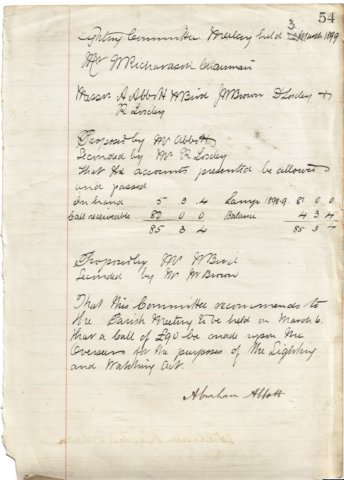 54
Lighting Committee Meeting held 3 March 1899
Mr W Richardson Chairman
Messrs A Abbott W Bird J W Brown D Losley &
R Losley
Proposed by Mr Abbott
Seconded by Mr R Losley
That the accounts presented be allowed
and passed
In hand 5 3 4 Lamps 1898-9. 81 0 0
Call receivable 80 0 0 Balance 4 3 4
85 3 4 85 3 4
Proposed by Mr W Bird
Seconded by Mr W Brown
That this Committee recommends to
the Parish Meeting to be held on March 6.
that a Call of £90 be made upon the
Overseers for the purposes of the Lighting
and Watching Act.
Abraham Abbott